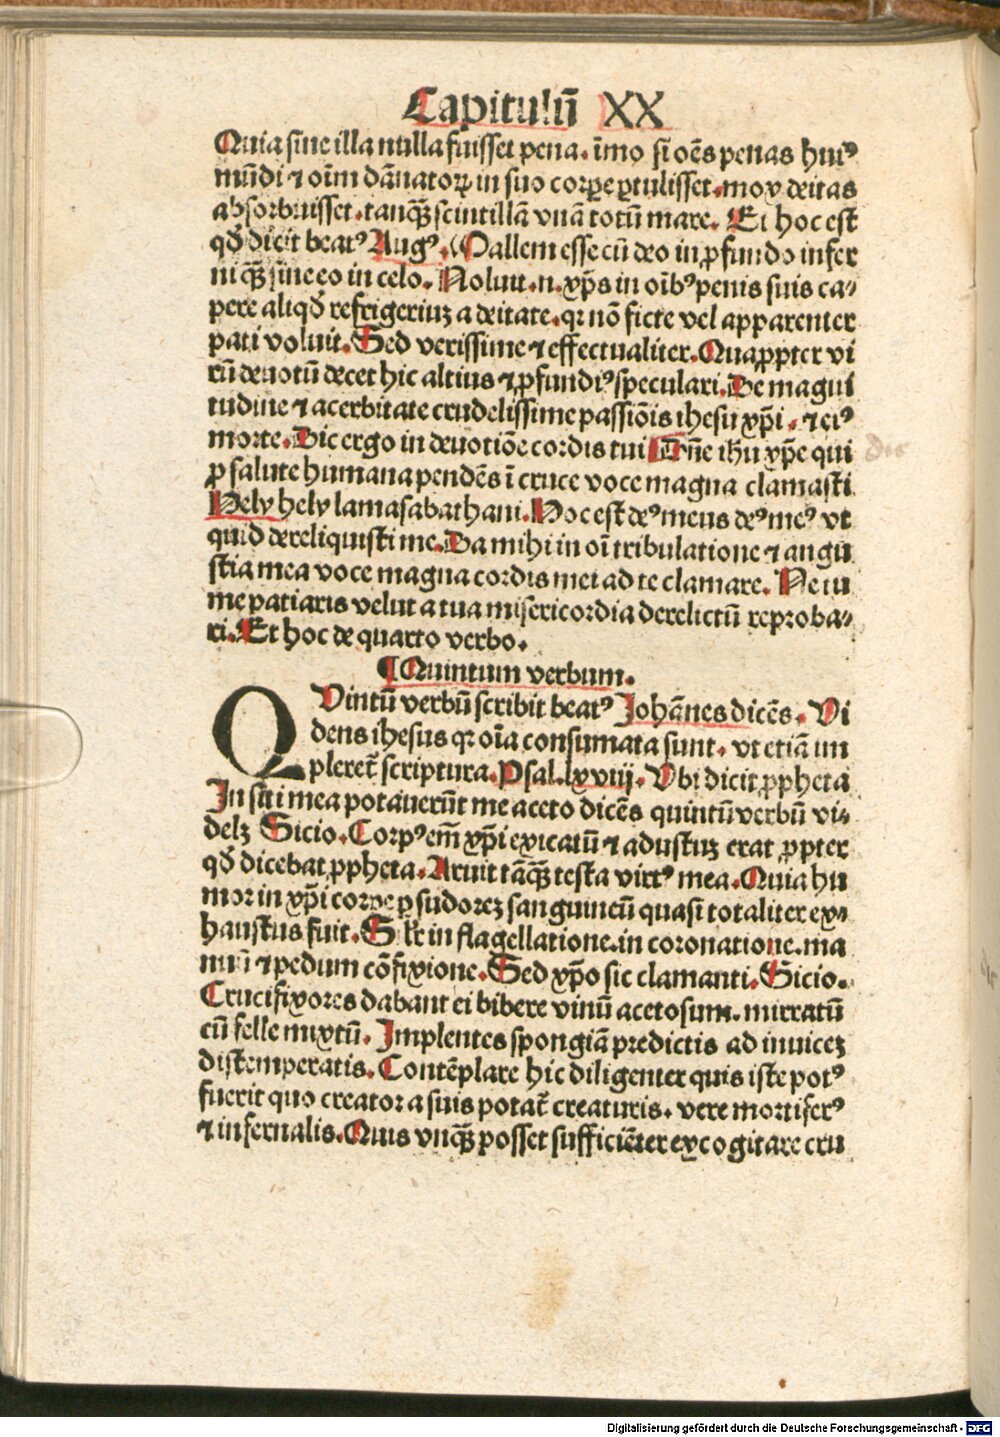 Capitulū XX
Quia sine illa nulla fuisset pena. īmo si oēs penas huiꝰ
mūdi ⁊ oīm dānatoꝝ in suo corꝑe ꝑtulisset. mox deitas
absorbuisset. tanqȝ̄ scintillā vnā totū mare. Et hoc est
qđ dicit beatꝰ Augꝰ. Mallem esse cū deo in ꝓfundo infer
ni qȝ̄ sine eo in celo. Noluit. n. xp̄s in oībꝰ penis suis ca⸗
pere aliqđ refrigeriuȝ a deitate. qꝛ nō ficte vel apparenter
pati voluit. Sed verissime ⁊ effectualiter. Quaꝓpter vi
rū deuotū decet hic altius ⁊ ꝓfundiꝰ speculari. De magni
tudine ⁊ acerbitate crudelissime passiōis ihesu xp̄i. ⁊ eiꝰ
morte. Dic ergo in deuotiōe cordis tui Dn̄e ihu xp̄e qui
ꝓ salute humana pendēs ī cruce voce magna clamasti
Hely hely lamasabathani. Hoc est deꝰ meus deꝰ meꝰ vt
quid dereliquisti me. Da mihi in oī tribulatione ⁊ angu
stia mea voce magna cordis mei ad te clamare. Ne tu
me patiaris velut a tua misericordia derelictū reproba⸗
ri. Et hoc de quarto verbo.
¶ Quintum verbum.
QVintū verbū scribit beatꝰ Johānes dicēs. Vi
dens ihesus qꝛ oīa consumata sunt. vt etiā im
pleret̄ scriptura. Psal. lxviij. Vbi dicit ꝓpheta
In siti mea potauerūt me aceto dicēs quintū verbū vi⸗
delȝ Sicio. Corpꝰ em̄ xp̄i exicatū ⁊ adustuȝ erat ꝓpter
qđ dicebat ꝓpheta. Aruit tāqȝ̄ testa virtꝰ mea. Quia hu
mor in xp̄i corpe ꝑ sudoreȝ sanguineū quasi totaliter ex⸗
haustus fuit. Sīłr in flagellatione. in coronatione. ma
nuū ⁊ pedum cōfixione. Sed xp̄o sic clamanti. Sicio.
Crucifixores dabant ei bibere vinū acetosum. mirratū
cū felle mixtū. Implentes spongiā predictis ad inuiceȝ
distemperatis. Contēplare hic diligenter quis iste potꝰ
fuerit quo creator a suis potat̄ creaturis. vere mortiferꝰ
⁊ infernalis. Quis vnqȝ̄ posset sufficiēter excogitare cru
Digitalisierung gefördert durch die Deutsche Forschungsgemeinschaft - DFG